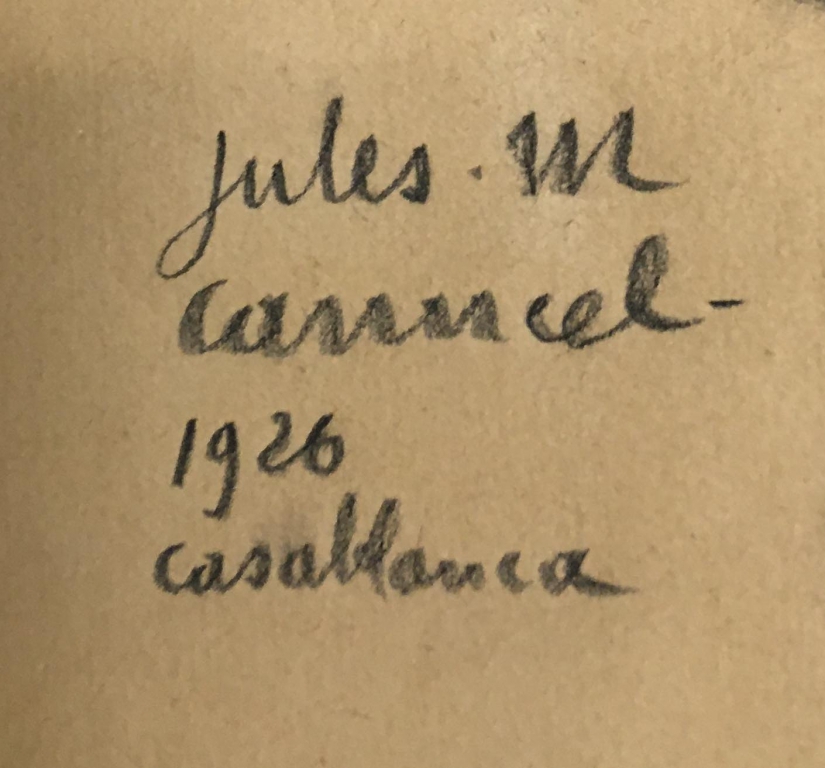 Jules. M
Canncel-
1926
Casablanca